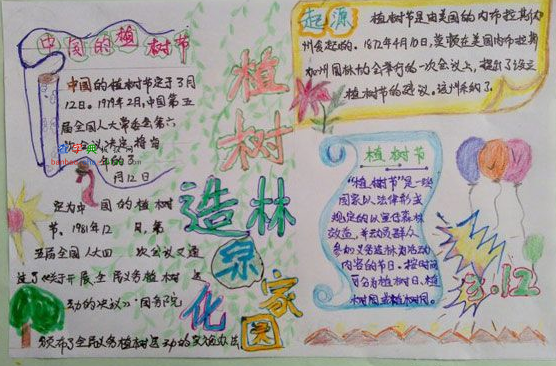 中国的植树节
中国的植树节定于3月
12日。1979年2月,中国第五
届全国人大常委会第六
次会议决定将每
年的3
月12日
定为中国的植树
节。1981年12月,第
五届全国人大四次会议又通
过了《关于开展全民义务植树运
动的决议》。国务院
颁布了全民义务植树运动的实施办法
植树
造林
绿化
家园
起源
植树节是由美国的内布拉斯加
州发起的。1872年4月10日,莫顿在美国内布拉斯
加州园林协会举行的一次会议上,提出了设立
植树节的建议。这州采纳了
植树节
"植树节"是一些
国家以法律形式
规定的以宣传森林
效益,并动员群众
参加义务造林为活动
内容的节日。按时间
可分为植树日、植
树周或植树月。
3.12